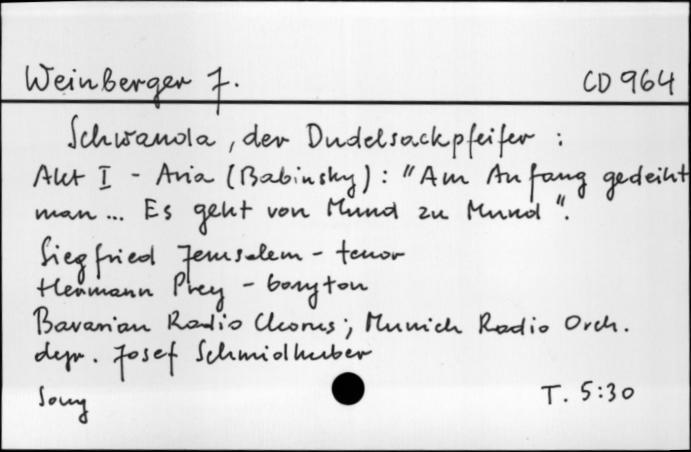 Weinberger J.
CD 964
Schwanda, der Dudelsackpfeifer :
Akt I - Aria (Babinsky) : "Am Anfang gedeiht
man ... Es geht von Mund zu Mund".
Siegfried Jerusalem - tenor
Hermann Prey - baryton
Bavarian Radio Chorus ; Munich Radio Orch.
dyr. Josef Schmidhuber
Sony
T. 5:30